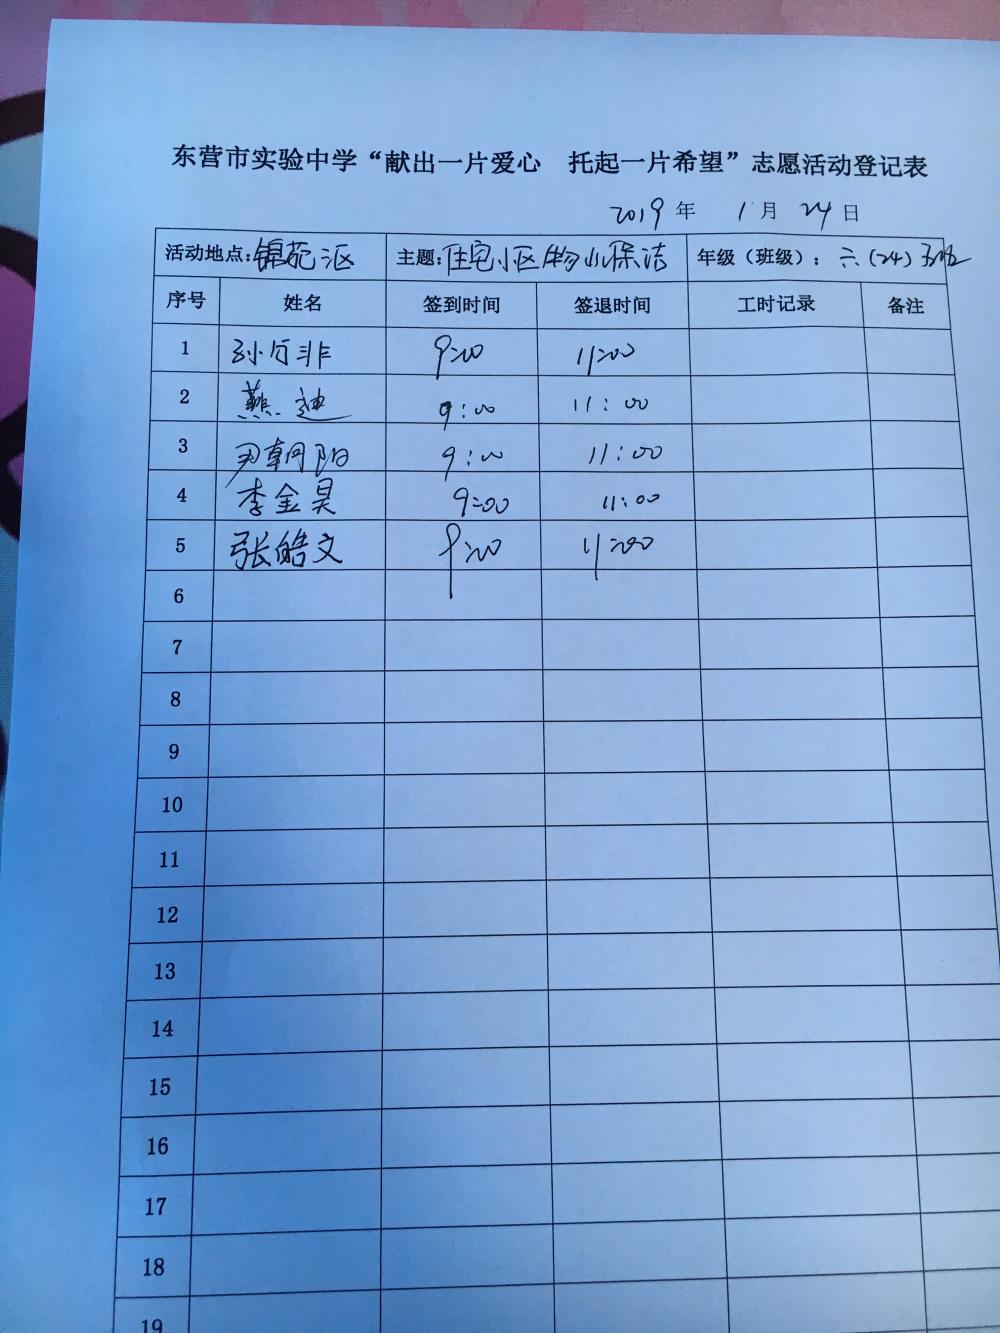 东营市实验中学“献出一片爱心 托起一片希望”志愿活动登记表
2019 年 1 月 24 日
活动地点:锦苑三区 主题:住宅小区物业保洁 年级(班级):六(24)
序号 姓名 签到时间 签退时间 工时记录 备注
1 9:00 11:00
2 燕迪 9:00 11:00
3 尹朝阳 9:00 11:00
4 李金昊 9:00 11:00
5 张皓文 9:00 11:00
6
7
8
9
10
11
12
13
14
15
16
17
18
19